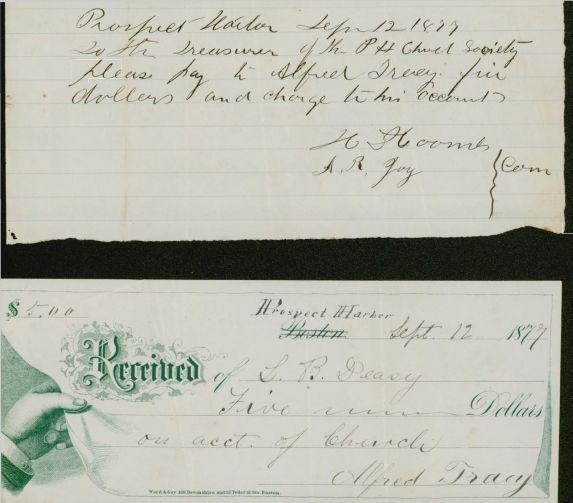 Prospect Harbor Sepn 12 1877
To the Treasurer of the P H Church Society
please pay to Alfred Tracy five
dollars and charge to his accounts
H
A. R. Joy
Com
$ 5.00
Prospect Harbor
Boston Sept. 12 1877
Received of L. B. Deasy
Five Dollars
on acct. of Church
Alfred Tracy
Ward & Gay 180 Devonshire and 27 Federal Sts. Boston.